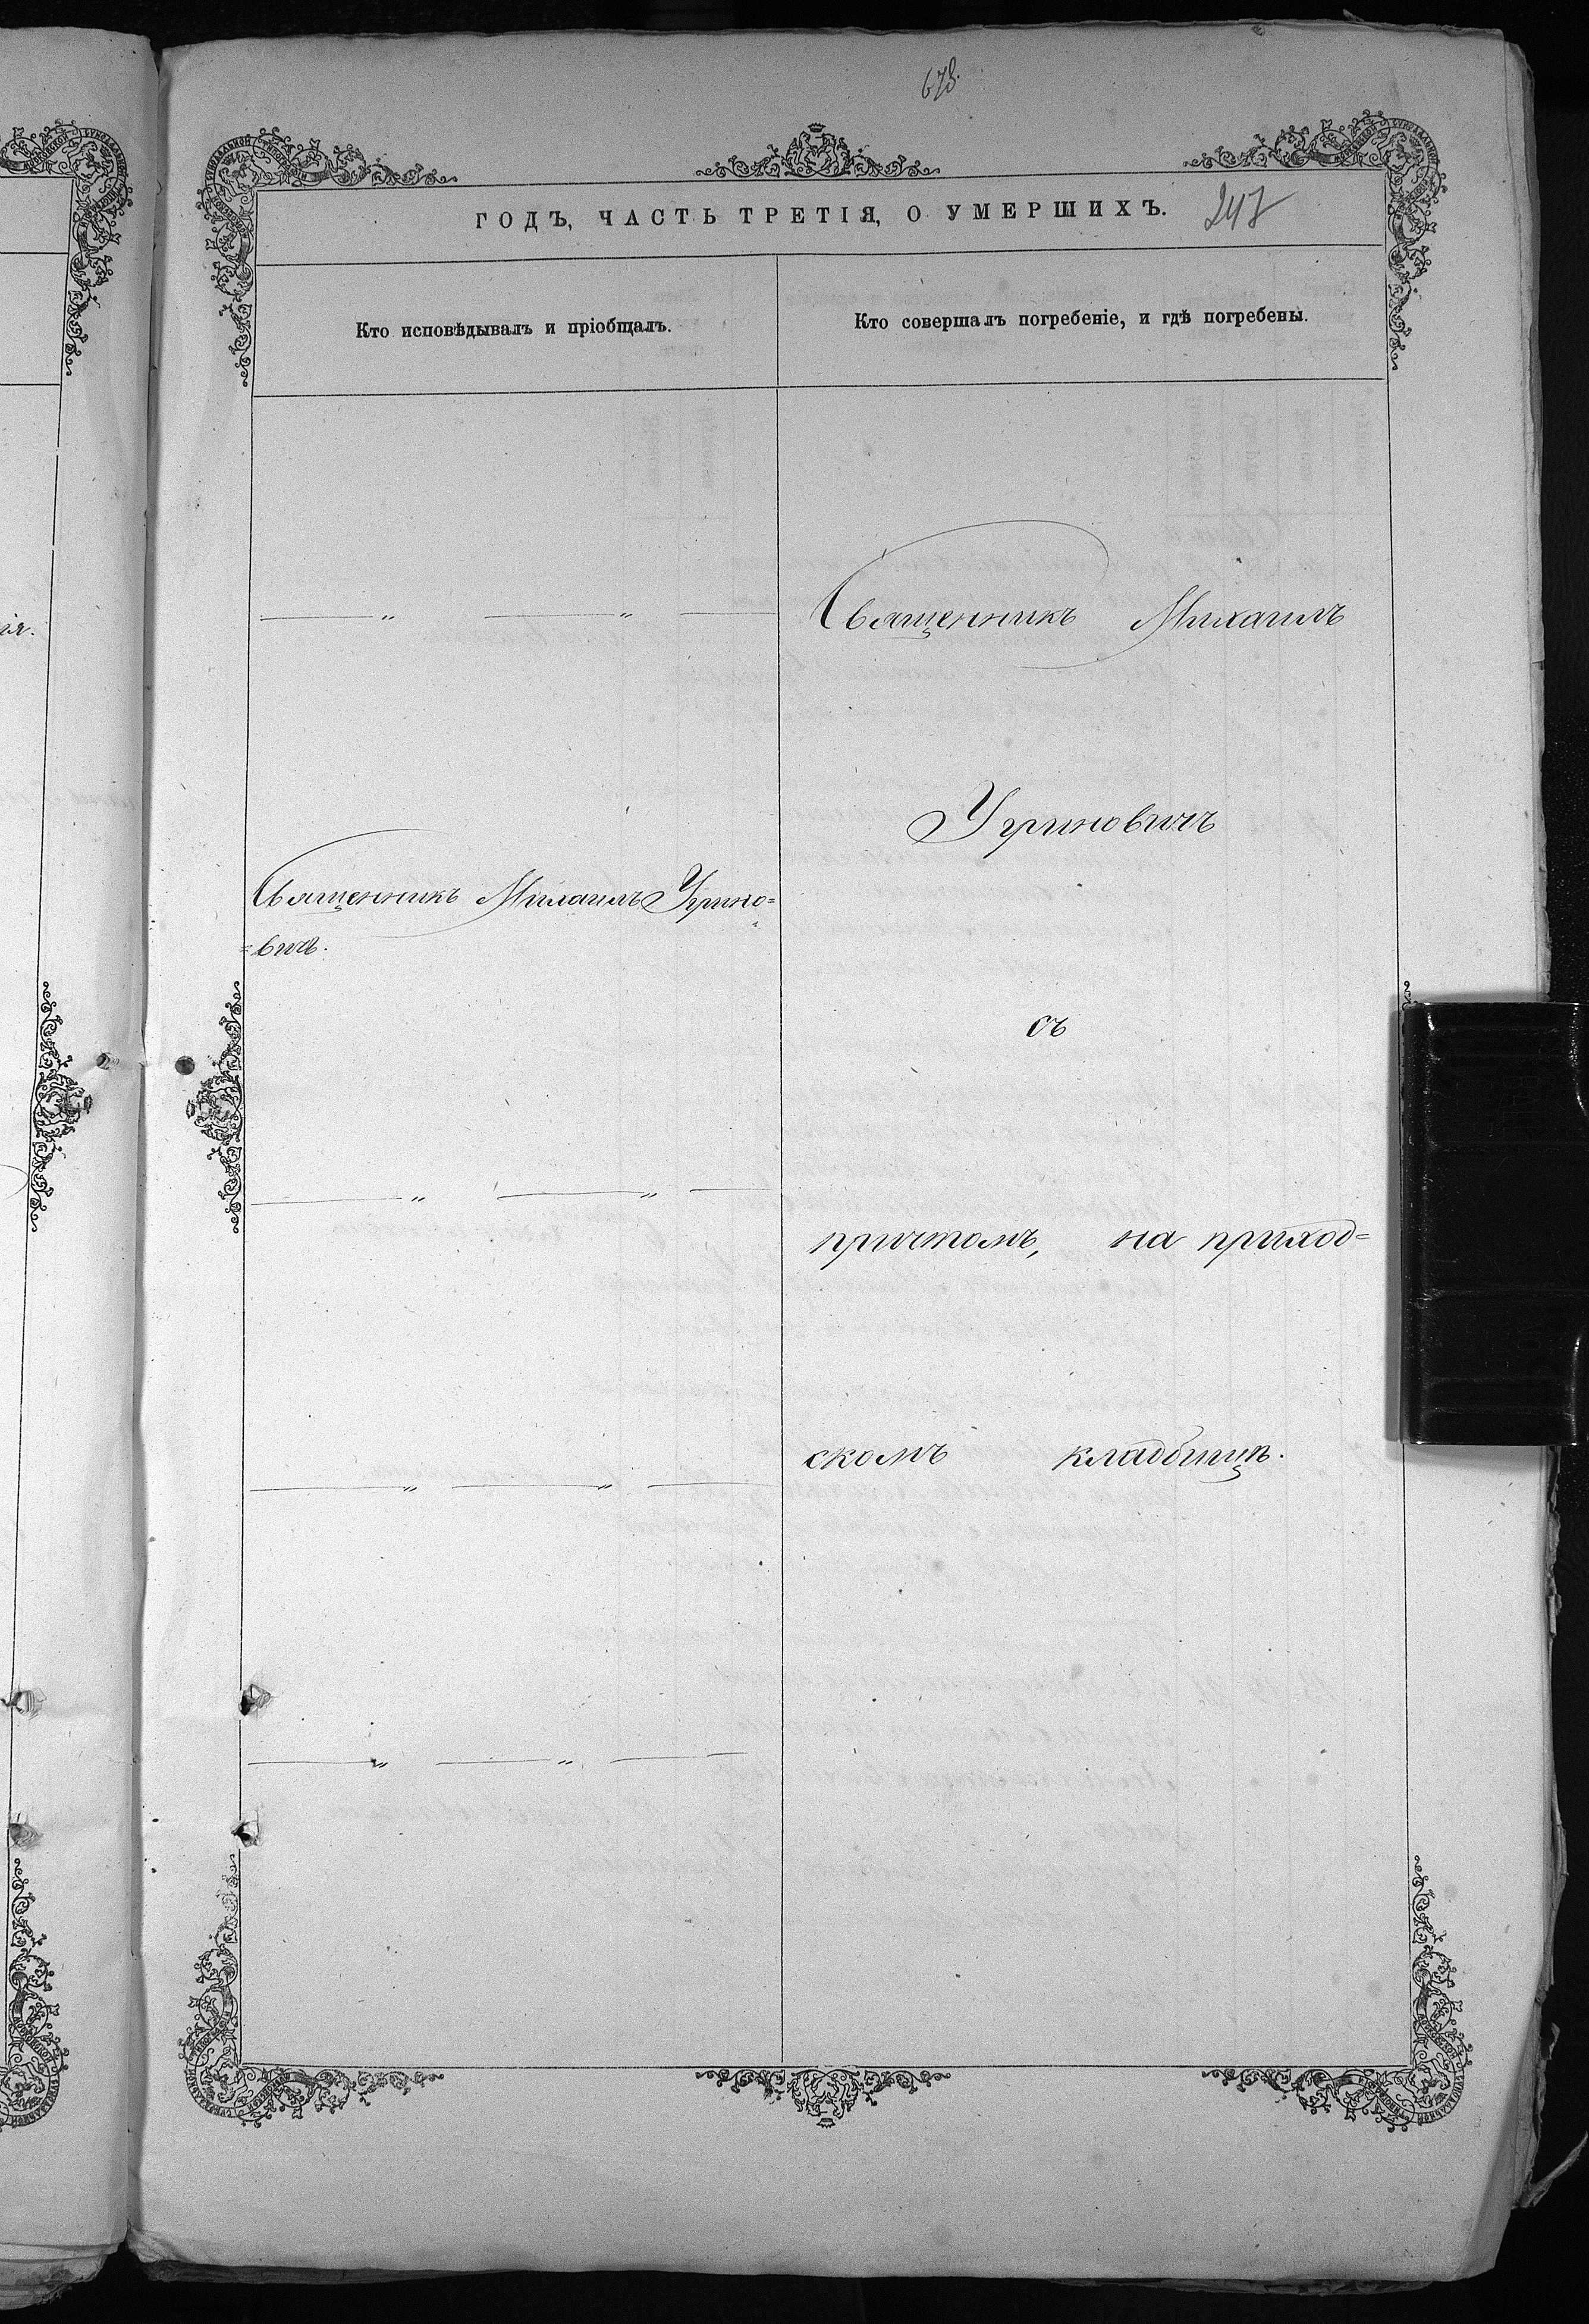 673.
ГОДЪ, ЧАСТЬ ТРЕТІЯ, О УМЕРШИХЪ. 247
Кто исповѣдывалъ и пріобщалъ.
Кто совершалъ погребеніе, и гдѣ погребены.
— „ — „ —
Священникъ Михаилъ Угрино=
=вичъ.
— „ — „ —
— „ — „ —
— „ — „ —
Священникъ Михаилъ
Угриновичъ
съ
причтомъ, на приход=
скомъ кладбищѣ.